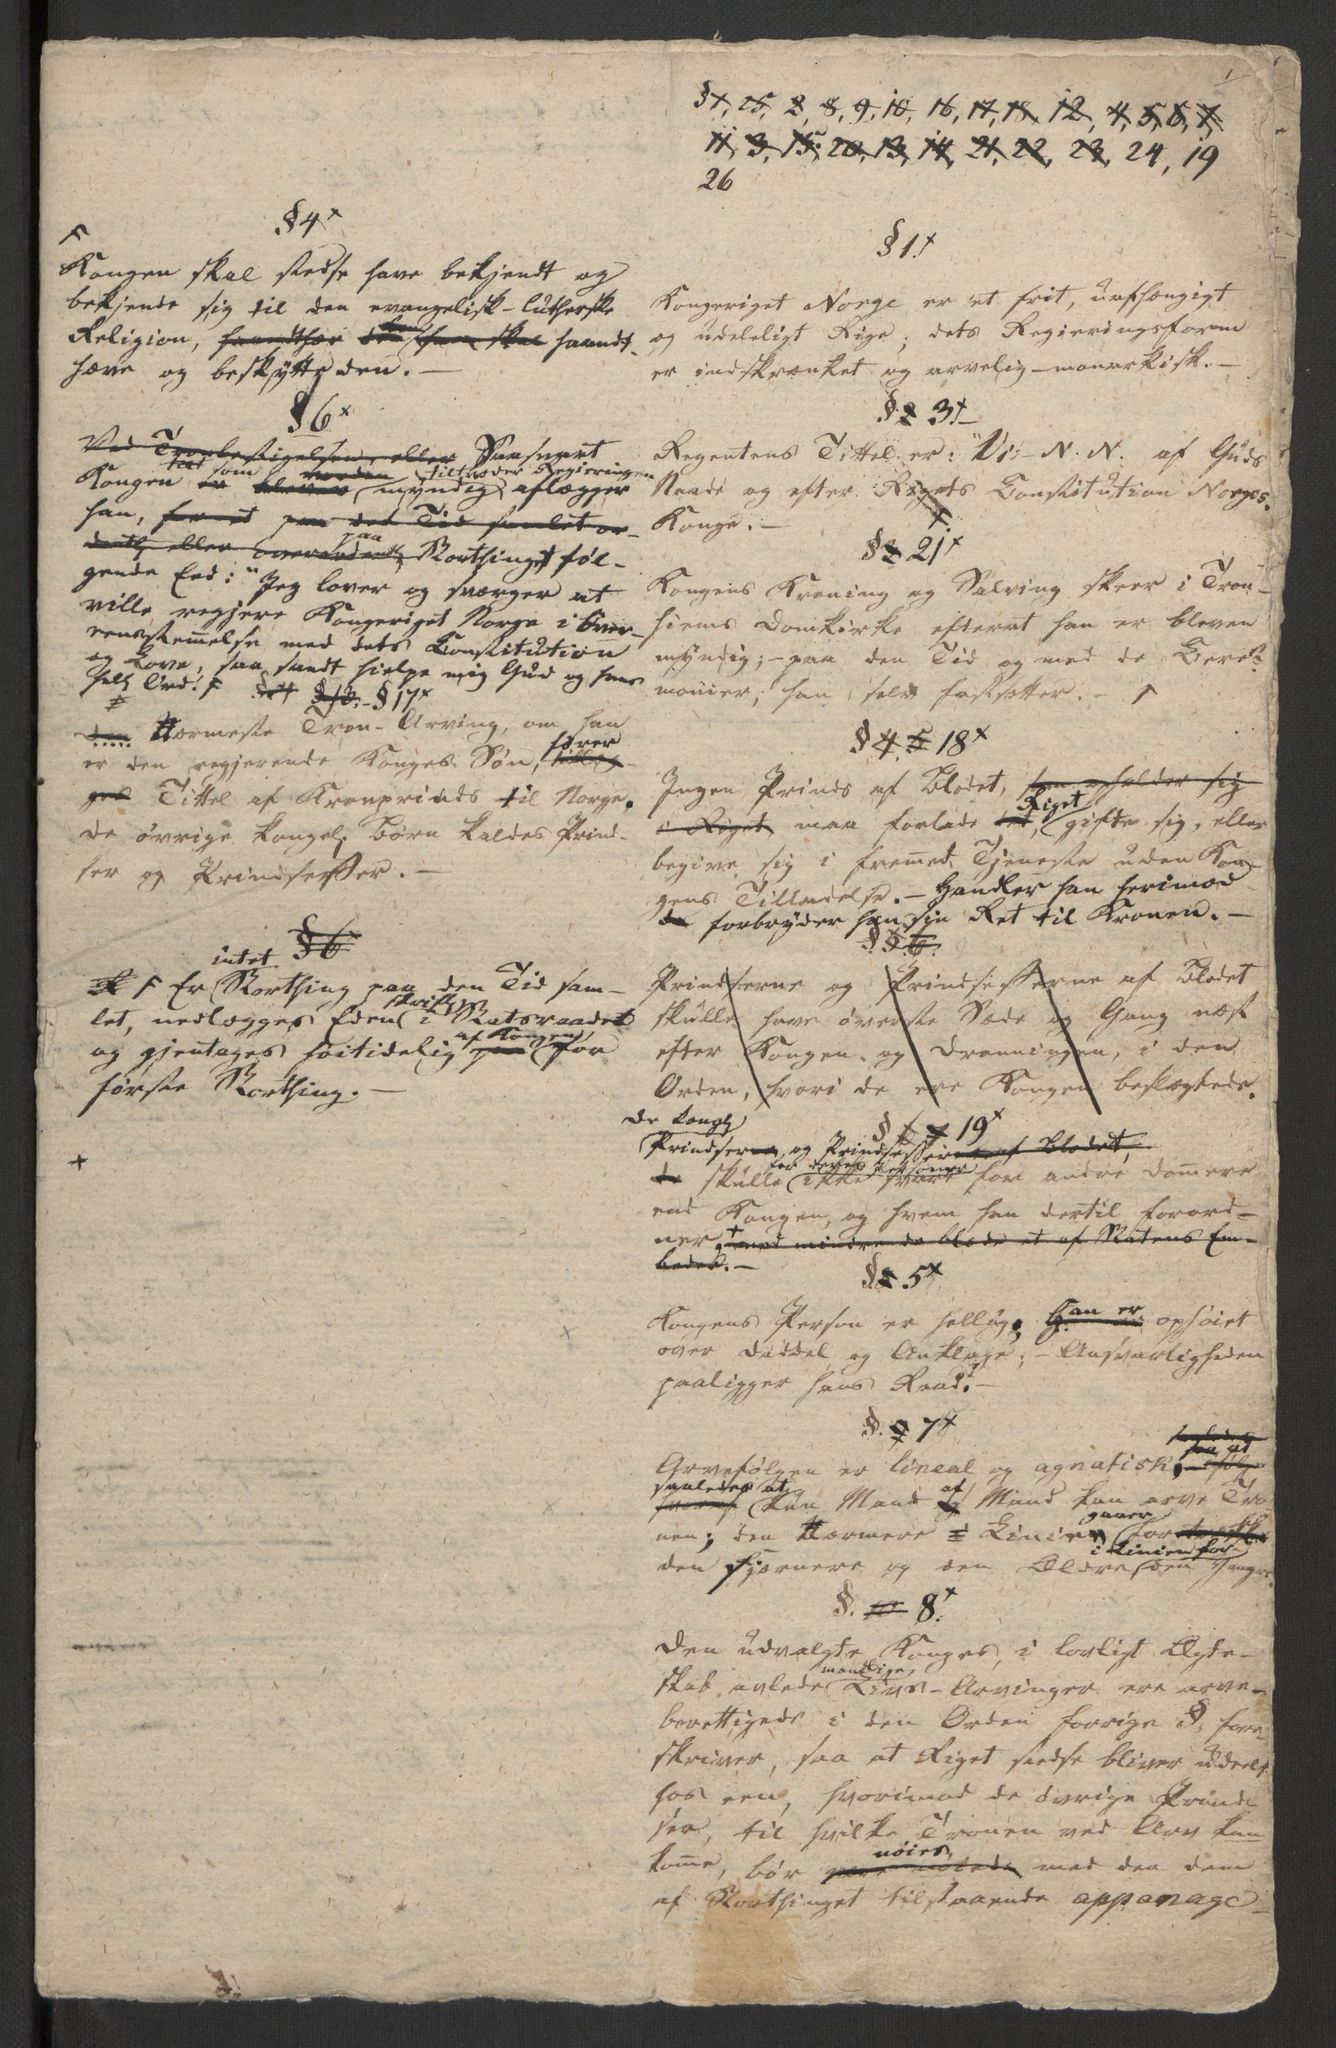 § 1, 25, 2, 8, 9, 10, 16, 17, 18, 12, 4, 5, 6, 7,
11, 3, 15, 20, 13, 14, 21, 22, 23, 24, 19
26
§ 4
Kongen skal stedse have bekjendt og
bekjende sig til den evangelisk-lutherske
Religion, haandthæve den han skal haandt-
hæve og beskytte den. —
§ 6
Ved Tronbestigelsen, eller Saasnart
Kongen er bleven som myndig tiltræder Regieringen aflægger
han, for et paa den Tid samlet or-
dentl: eller overordentl: paa Storthinget føl-
gende Eed: "Jeg lover og sværger at
ville regjere Kongeriget Norge i Over-
eensstemmelse med dets Constitution
og Love, saa sandt hielpe mig Gud og hans
hell: Ord!
§ 17
den Nærmeste Tron-Arving, om han
er den regjerende Konges Søn, fører tillæg-
ges Tittel af Kronprinds til Norge.
de øvrige kongel: Børn kaldes Prind-
ser og Prindsesser. —
§ 6
Er intet Storthing paa den Tid sam-
let, nedlægges Eden skriftl: i Statsraadet
og gjentages høitidelig af Kongen paa for
første Storthing. —
§ 1.
Kongeriget Norge er et frit, uafhængigt
og udeleligt Rige; dets Regieringsform
er indskrænket og arvelig-monarkisk. —
§ 2 3
Regentens Tittel er: "Vi — N. N. af Guds
Naade og efter Rigets Constitution Norges
Konge. —
§ 21
Kongens Kroning og Salving skeer i Tron-
hiems Domkirke efterat han er bleven
myndig; — paa den Tid og med de Cere-
monier, han selv fastsætter. —
§ 4 5 18
Ingen Prinds af Blodet, som opholder sig
i Riget, maa forlade Riget, gifte sig, eller
begive sig i fremmed Tjeneste uden Kon-
gens Tilladelse. — Handler han herimod
da forbryder han sin Ret til Kronen. —
§ 5 6
Prindserne og Prindsesserne af Blodet
skulle have øverste Sæde og Gang næst
efter Kongen og Dronningen, i den
Orden, hvori de ere Kongen beslægtede.
§ 7 19
De kongl:
Prindserne og Prindsesserne af Blodet,
de skulle for deres Personer ikke svare for andre Dommere
end Kongen, og hvem han dertil forord-
ner, med mindre de beklæde et af Statens Em-
beder. —
§ 5
Kongens Person er hellig; Han er ophøiet
over Daddel og Anklage; — Ansvarligheden
paaligger hans Raad. —
§. 9 7
Arvefølgen er lineal og agnatisk, saa at
saaledes at kun Mand af Mand kan arve Tro-
nen; den Nærmere Linie gaaer for
den fjernere og den Ældre i Linien for den Yngre.
§. 10 8.
Den udvalgte Konges, i lovligt Ægte-
skab avlede mandlige Livs-Arvinger ere arve-
berettigede i den Orden forrige §. fore-
skriver, saa at Riget stedse bliver udeelt
hos een, hvorimod de øvrige Prind-
ser, til hvilke Tronen ved Arv kan
komme, bør nøies med den dem
af Storthinget tilstaaende appanage